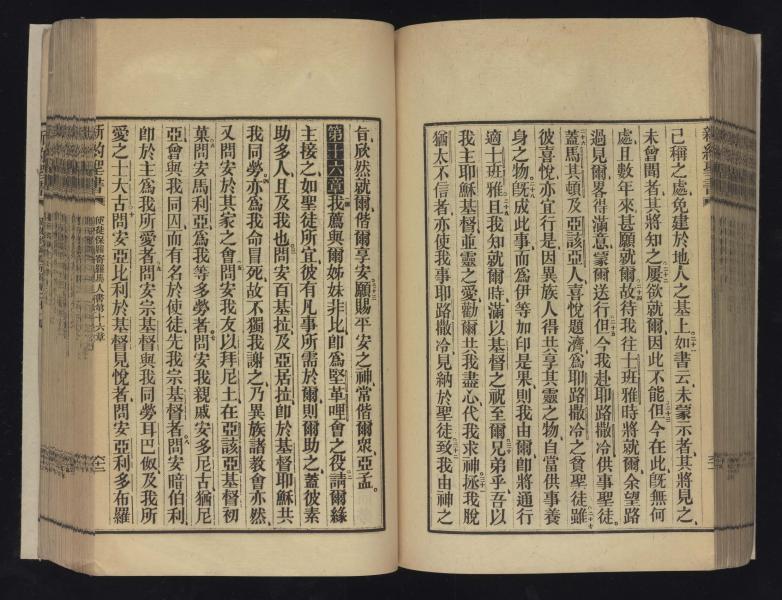 己稱之處免建於地人之基上如書云未蒙示者其將見之
未曾聞者其將知之屢欲就爾因此不能但今在此旣無何
處且數年來甚願就爾故待我往士班雅時將就爾余望路
過見爾畧得滿意蒙爾送行但今我赴耶路撒冷供事聖徒
蓋馬其頓及亞該亞人喜悅題濟爲耶路撒冷之貧聖徒雖
彼喜悅亦宜行是因異族人得共享其靈之物自當供事養
身之物旣成此事而爲伊等加印是果則我由爾卽將通行
適士班雅且我知就爾時滿以基督之祝至爾兄弟乎吾以
我主耶穌基督並靈之愛勸爾共我盡心代我求神拯我脫
猶太不信者亦使我事耶路撒冷見納於聖徒致我由神之
旨欣然就爾偕爾享安願賜平安之神常偕爾眾亞孟
第十六章 我薦與爾姊妹非比卽爲堅革哩會之役請爾緣
主接之如聖徒所宜彼有凡事所需於爾則爾助之蓋彼素
助多人且及我也問安百基拉及亞居拉卽於基督耶穌共
我同勞亦爲我命冒死故不獨我謝之乃異族諸教會亦然
又問安於其家之會問安我友以拜尼土在亞該亞基督初
菓問安馬利亞爲我等多勞者問安我親戚安多尼古猶尼
亞曾與我同囚而有名於使徒先我宗基督者問安暗伯利
卽於主爲我所愛者問安宗基督與我同勞耳巴𠋣及我所
愛之士大古問安亞比利於基督見悅者問安亞利多布羅
新約聖書
使徒保羅寄羅馬人書第十六章